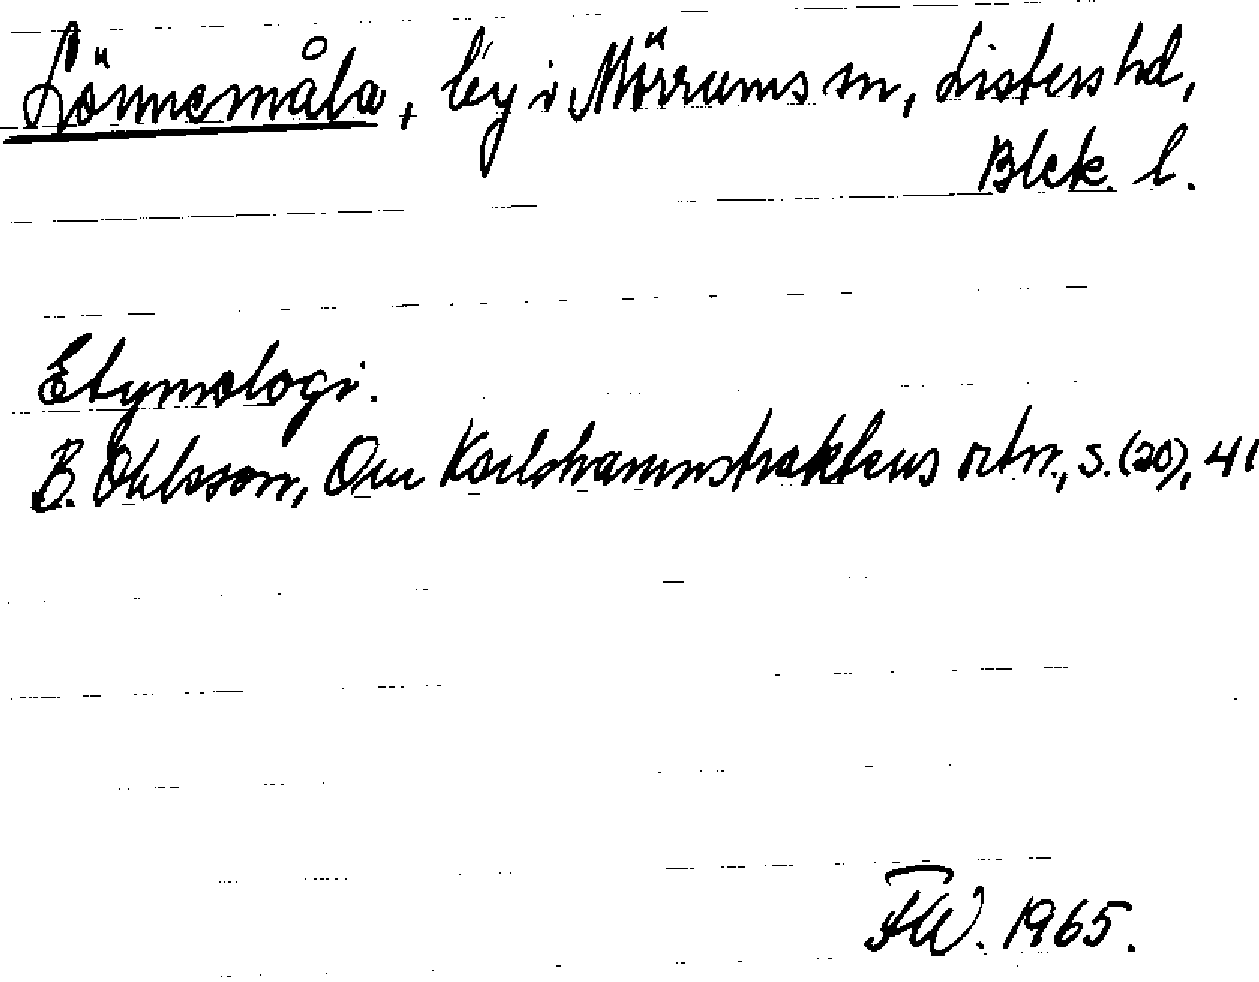 Lönnemåla, by i Mörrums sn, Listers hd,
Blek. l.
Etymologi.
B. Ohlsson, Om Karlshamnstraktens ortn., s. (20), 41
FW. 1965.